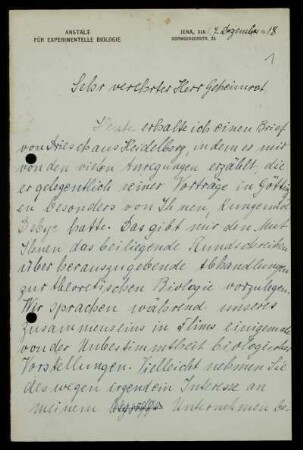 ANSTALT
FÜR EXPERIMENTELLE BIOLOGIE
JENA, DEN 7. Dezember 18
1
Sehr verehrter Herr Geheimrat
Heute erhalte ich einen Brief
von Driesch aus Heidelberg, in dem er mir
von den vielen Anregungen erzählt, die
er gelegentlich seiner Vorträge in Götting
en besonders von Ihnen, Runge und
Debye hatte. Das gibt mir den Mut
Ihnen das beiliegende Rundschreiben
über herauszugebende Abhandlungen
zur theoretischen Biologie vorzulegen.
Wir sprachen während unseres
Zusammenseins in Flims einigemale
von der Unbestimmtheit biologischer
Vorstellungen. Vielleicht nehmen Sie
deswegen irgend ein Interesse an
meinem Unternehmen be-